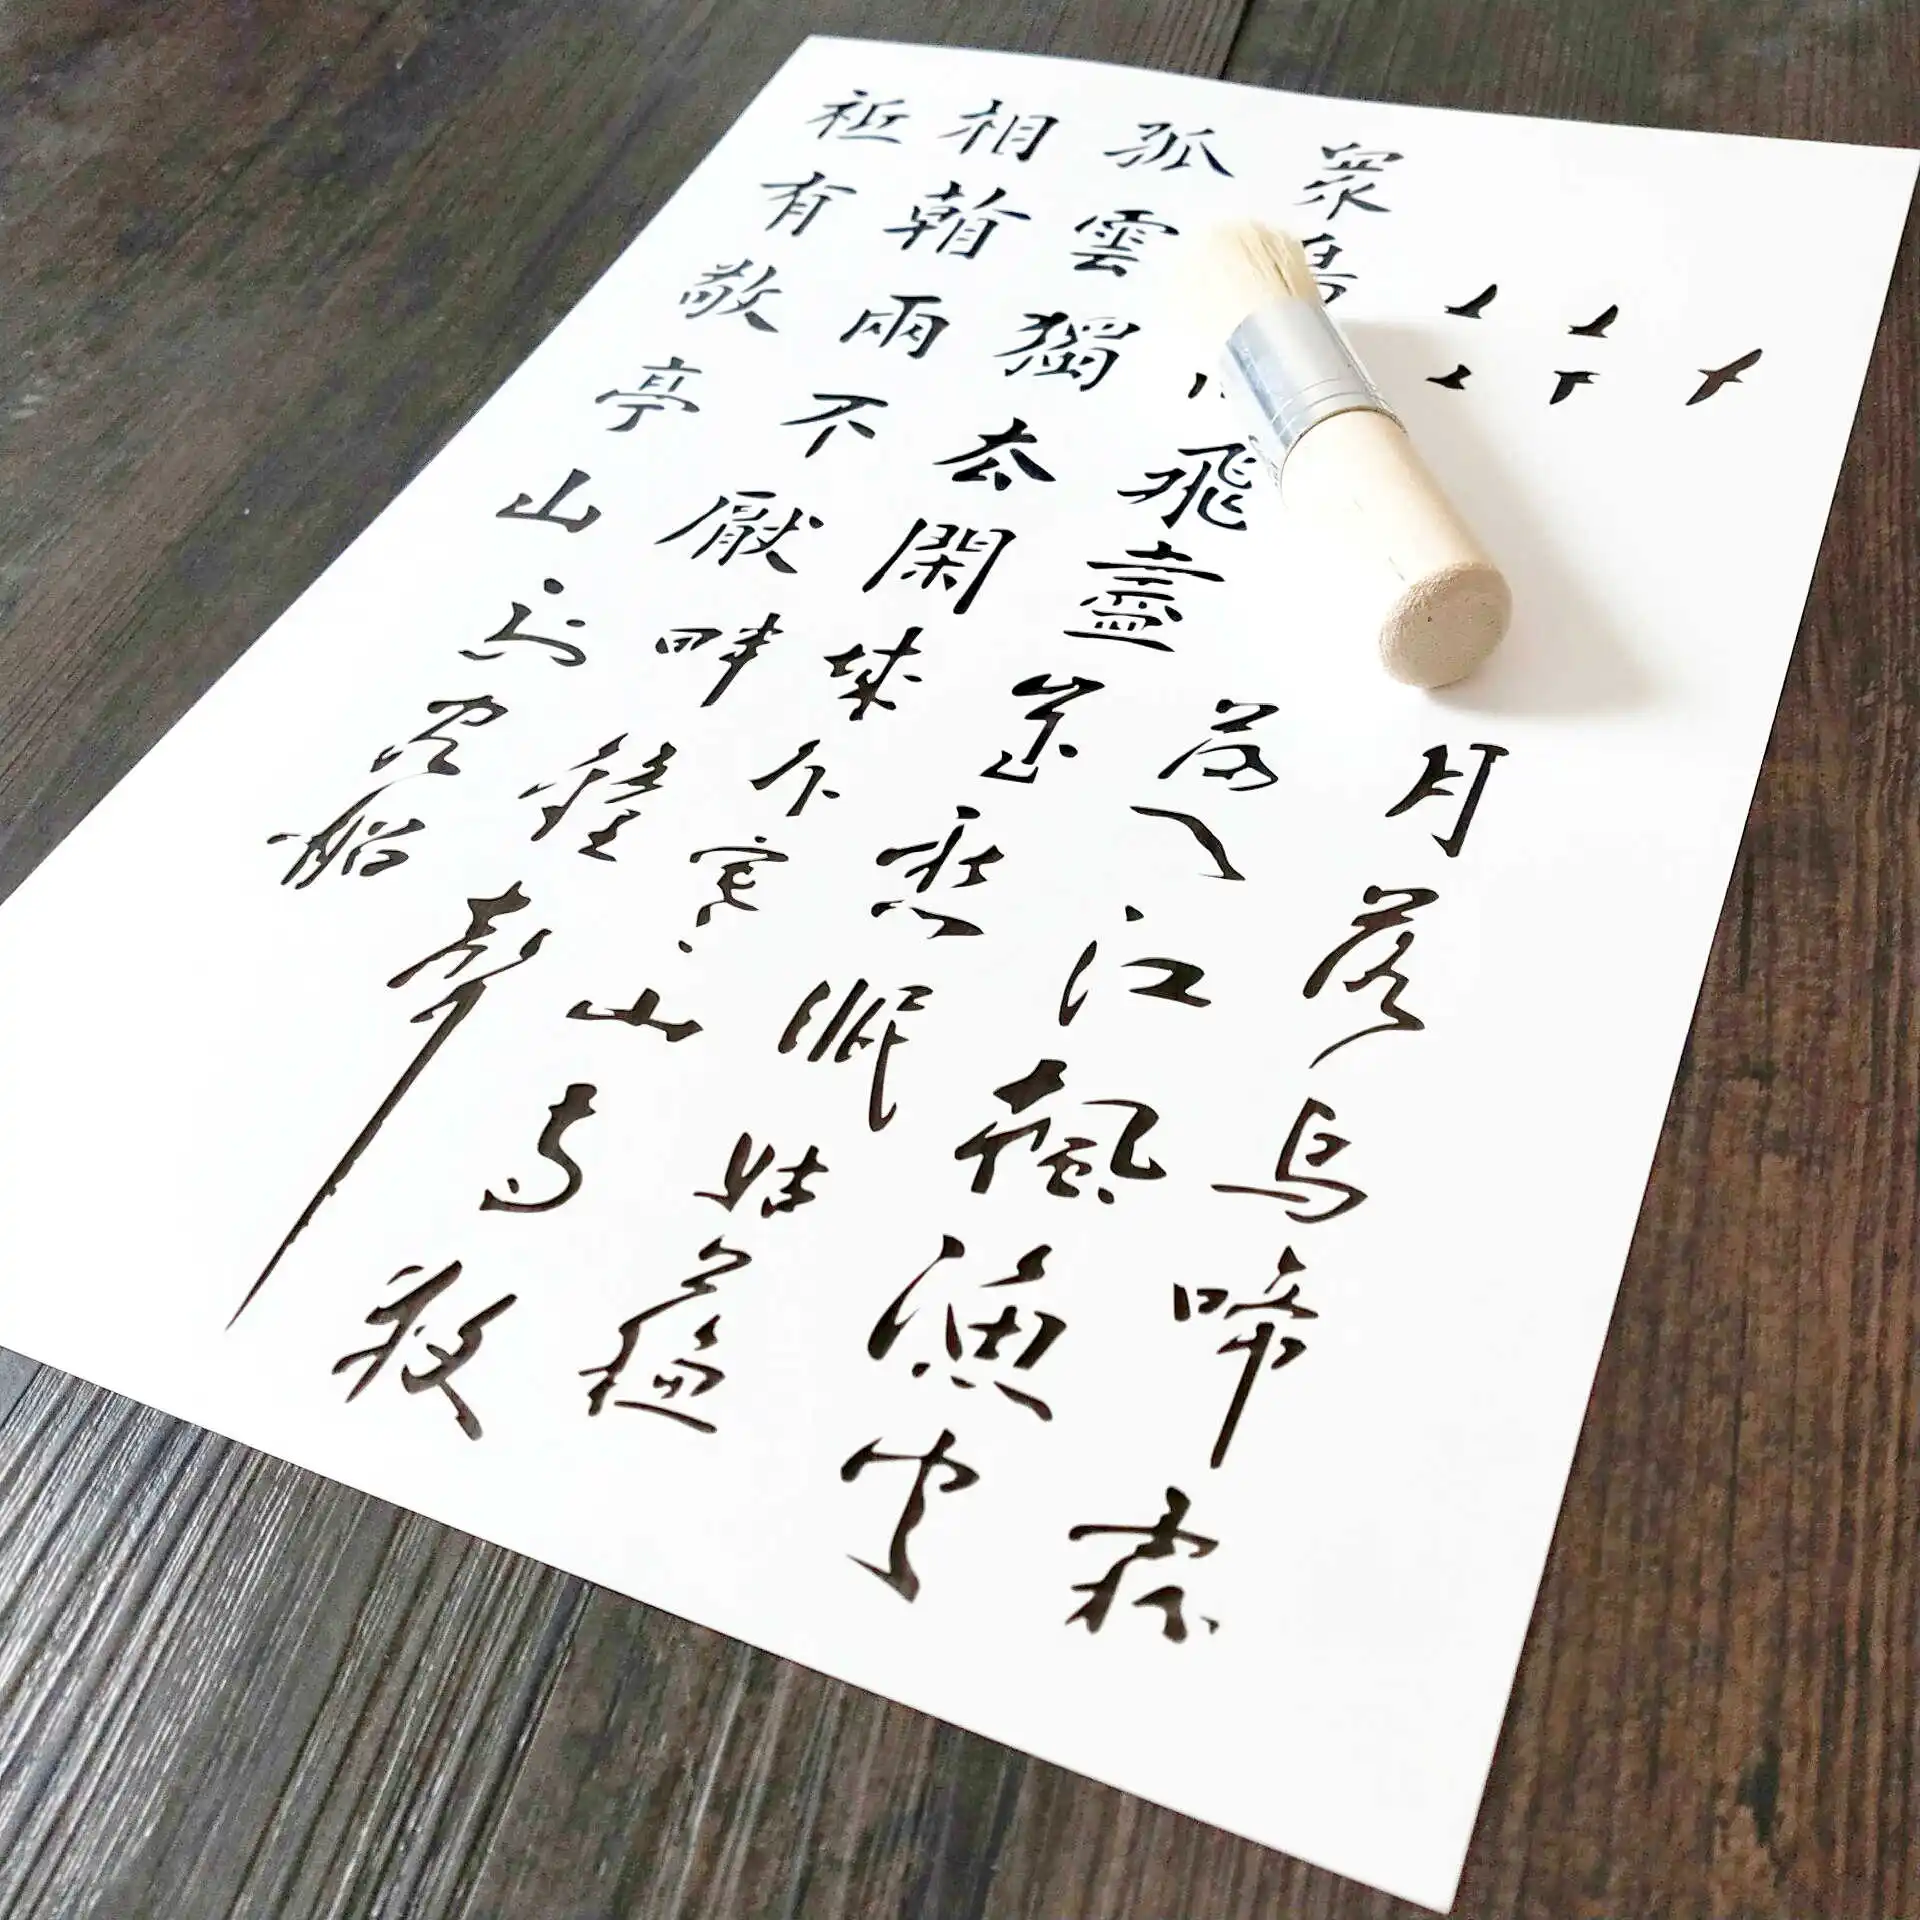 眾鳥飛盡
孤雲獨去閑
相看兩不厭
祗有敬亭山
月落烏啼霜
滿天江楓漁火
對愁眠姑蘇
城外寒山寺夜
半鐘聲
到客船